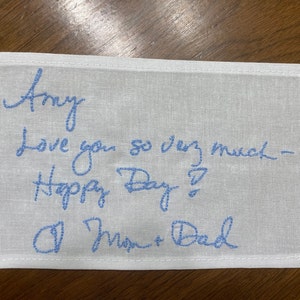 Amy
Love you so very much -
Happy Day?
Mom + Dad